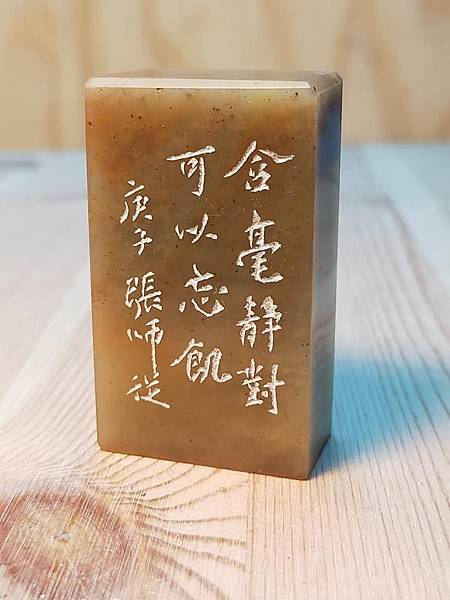 含毫靜對
可以忘飢
庚子 張師從